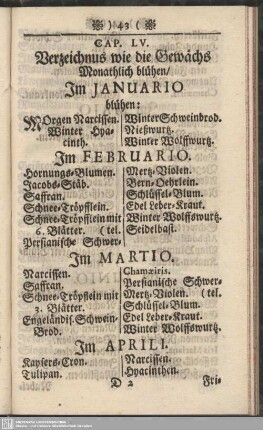 ) 43 (
CAP. LV.
Verzeichnus wie die Gewächs
Monathlich blühen/
Im JANUARIO
blühen:
MOrgen Narcissen.
Winter Hyacinth.
Winter Schweinbrod.
Nießwurtz.
Winter Wolffswurtz.
Im FEBRUARIO.
Hornungs-Blumen.
Jacobs-Stäb.
Saffran.
Schnee-Tröpfflein.
Schnee-Tröpfflein mit
6. Blätter. ( tel.
Persianische Schwer-
Mertz-Violen.
Bern-Oehrlein.
Schlüssel-Blum.
Edel Leber-Kraut.
Winter Wolffswurtz.
Seidelbast.
Im MARTIO.
Narcissen.
Saffran.
Schnee-Tröpfflein mit
3. Blätter.
Engeländis. Schwein-
Brod.
Chamæiris.
Persianische Schwer-
Mertz-Violen. ( tel.
Schlüssel-Blum.
Edel Leber-Kraut.
Winter Wolffswurtz.
Im APRILI.
Kaysers-Cron.
Tulipan.
Narcissen.
Hyacinthen.
D 2
Fri-